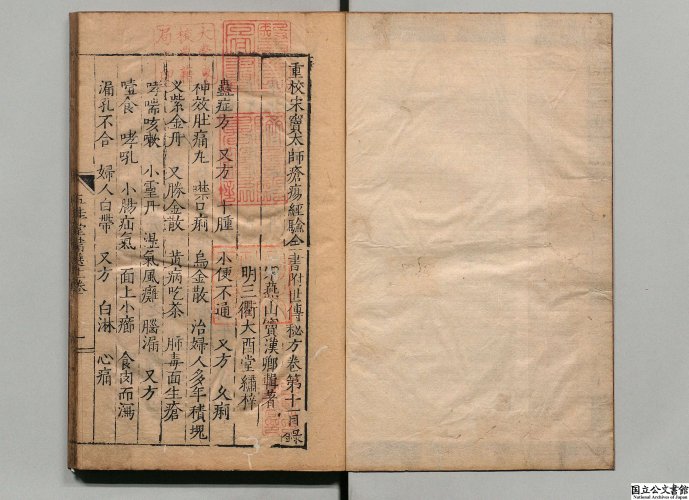 重校宋竇太師瘡瘍經驗全書附世傳秘方卷第十一目录
宋燕山竇漢卿輯著
明三衢大酉堂繡梓
蠱症方　又方　十腫　小便不通　又方　久痢
神效肚痛丸　噤口痢　烏金散　治婦人多年積塊
又紫金丹　又勝金散　黃病吃茶　肺毒面生瘡
哮喘咳嗽　小靈丹　濕氣風癱　腦漏　又方
噎食　哮吼　小腸疝氣　面上小癤　食肉而瀉
漏乳不合　婦人白帶　又方　白淋　心痛
卷
一
国立公文書館
National Archives of Japan